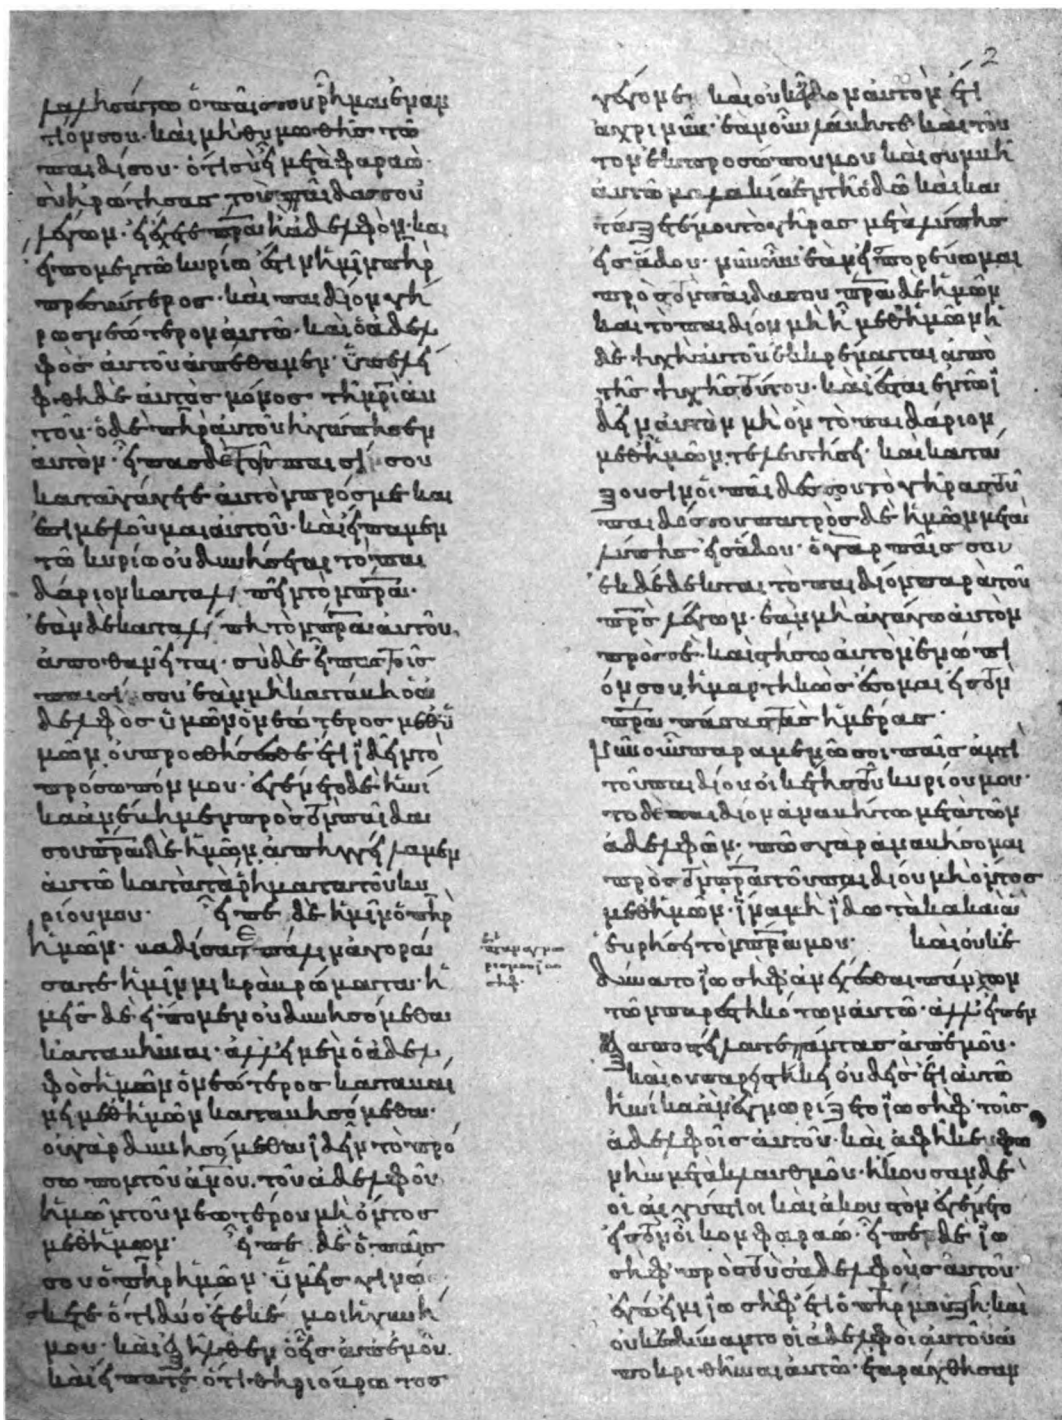 λαλησάτω ὁ παῖς σου ῥῆμα ἐναν
τίον σου· καὶ μὴ θυμωθῆς τῶ
παιδί σου· ὅτι σὺ εἶ μετὰ φαραώ·
σὺ ἠρώτησας τοὺς παῖδας σου
λέγων· εἰ ἔχετε πρ̅α ἢ ἀδελφόν· και
εἴπομεν τῶ κυρίω ἔστι ἡμῖν πη̅ρ
πρεσβύτερος· καὶ παιδίον γή
ρως νεώτερον αὐτῶ· καὶ ὁ ἀδελ
φὸς αὐτοῦ ἀπέθανεν· ὑπελεί
φθη δὲ αὐτὸς μόνος τῆ μρ̅ὶ αὐ
τοῦ· ὁ δὲ πη̅ρ αὐτοῦ ἠγάπησεν
αὐτόν· εἶπας δὲ τοῖς παισί σου
καταγάγετε αὐτὸν πρός με και
ἐπιμελοῦμαι αὐτοῦ· καὶ εἴπαμεν
τῶ κυρίω οὐ δυνήσεται τὸ παι
δάριον καταλιπεῖν τὸν πρ̅α·
ἐὰν δὲ καταλίπη τὸν πρ̅α αὐτοῦ,
ἀποθανεῖται· σὺ δὲ εἶπας τοῖς
παισί σου ἐὰν μὴ καταβῆ ὁ ἀ
δελφὸς ὑμῶν ὁ νεώτερος μεθ ὑ
μῶν οὐ προσθήσεσθε ἔτι ἰδεῖν τὸ
πρόσωπόν μου· ἐγένετο δὲ ἡνί
κα ἀνέβημεν πρὸς τὸν παῖδα
σου πρ̅α δὲ ἡμῶν ἀπηγγείλαμεν
αὐτῶ κατὰ τὰ ῥήματα τοῦ κυ
ρίου μου· εἶπε δὲ ἡμῖν ὁ πη̅ρ
ἡμῶν· βαδίσατε πάλιν ἀγορά
σατε ἡμῖν μικρὰ βρώματα· ἡ
μεῖς δὲ εἴπομεν οὐ δυνησόμεθα
καταβῆναι· ἀλλ εἰ μὲν ὁ ἀδελ
φὸς ἡμῶν ὁ νεώτερος καταβαί
νει μεθ ἡμῶν καταβησόμεθα·
οὐ γὰρ δυνησόμεθα ἰδεῖν τὸ πρό
σωπον τοῦ ἀνο̅υ, τοῦ ἀδελφοῦ
ἡμῶν τοῦ νεωτέρου μὴ ὄντος
μεθ ἡμῶν· εἶπε δὲ ὁ παῖς
σου ὁ πη̅ρ ἡμῶν· ὑμεῖς γινώ
σκετε ὅτι δύο ἔτεκέ μοι ἡ γυνή
μου· καὶ ἐξῆλθεν ὁ εἷς ἀπ ἐμοῦ.
καὶ εἴπατε ὅτι θηριόβρωτος
ἐκ
ἀναγνω
ρισμοῦ ἰω
σήφ·
2
γέγονε· καὶ οὐκ εἶδον αὐτὸν ἔτι
ἄχρι νῦν· ἐὰν οὖν λάβητε καὶ τοῦ
τον ἐκ προσώπου μου καὶ συμβῆ
αὐτῶ μαλακία ἐν τῆ ὁδῶ καὶ κα
τάξετέ μου τὸ γῆρας μετὰ λύπης
εἰς ἅδου· νῦν οὖν ἐὰν εἰσπορεύωμαι
πρὸς τὸν παῖδα σου πρ̅α δὲ ἡμῶν
καὶ τὸ παιδίον μὴ ἦ μεθ ἡμῶν ἡ
δὲ ψυχὴ αὐτοῦ ἐκκρέμαται ἀπὸ
τῆς ψυχῆς τούτου· καὶ ἔσται ἐν τῶ ἰ
δεῖν αὐτὸν μὴ ὂν τὸ παιδάριον
μεθ ἡμῶν τελευτήσει· καὶ κατά
ξουσιν οἱ παῖδες σου τὸ γῆρας τοῦ
παιδός σου πατρὸς δὲ ἡμῶν μετὰ
λύπης εἰς ἅδου· ὁ γὰρ παῖς σου
ἐκδέδεκται τὸ παιδίον παρὰ τοῦ
πρ̅ς λέγων· ἐὰν μὴ ἀγάγω αὐτὸν
πρὸς σὲ· καὶ στήσω αὐτὸν ἐνώπι
όν σου, ἡμαρτηκὼς ἔσομαι εἰς τὸν
πρ̅α πάσας τὰς ἡμέρας·
νῦν οὖν παραμενῶ σοι παῖς ἀντὶ
τοῦ παιδίου οἰκέτης τοῦ κυρίου μου·
τὸ δὲ παιδίον ἀναβήτω μετὰ τῶν
ἀδελφῶν· πῶς γὰρ ἀναβήσομαι
πρὸς τὸν πρ̅α τοῦ παιδίου μὴ ὄντος
μεθ ἡμῶν· ἵνα μὴ ἴδω τὰ κακὰ ἃ
εὑρήσει τὸν πρ̅α μου· καὶ οὐκ ἐ
δύνατο ἰωσὴφ ἀνέχεσθαι πάντων
τῶν παρεστηκότων αὐτῶ· ἀλλ εἶπεν
ἐξαποστείλατε πάντας ἀπ ἐμοῦ·
καὶ οὐ παρειστήκει οὐδεὶς ἔτι αὐτῶ
ἡνίκα ἀνεγνωρίζετο ἰωσὴφ τοῖς
ἀδελφοῖς αὐτοῦ· καὶ ἀφῆκε φω
νὴν μετὰ κλαυθμοῦ· ἤκουσαν δὲ
οἱ αἰγύπτιοι καὶ ἀκουστὸν ἐγένετο
εἰς τὸν οἶκον φαραώ· εἶπε δὲ ἰω
σὴφ πρὸς τοὺς ἀδελφοὺς αὐτοῦ·
ἐγώ εἰμι ἰωσὴφ ἔτι ὁ πη̅ρ μου ζῆ· καὶ
οὐκ ἐδύναντο οἱ ἀδελφοὶ αὐτοῦ ἀ
ποκριθῆναι αὐτῶ· ἐταράχθησαν